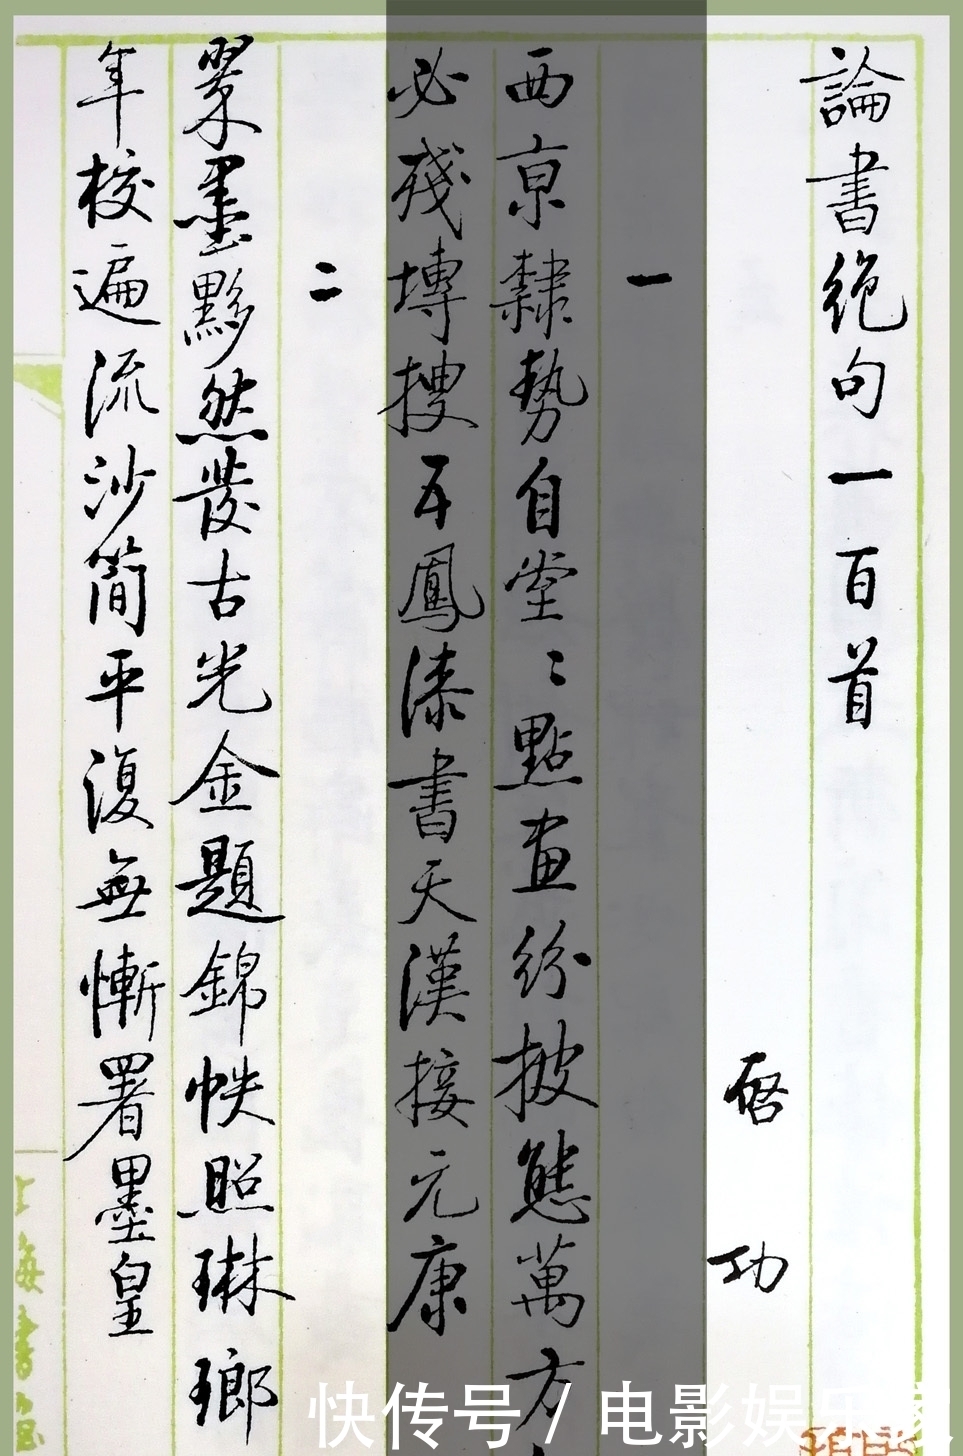 論書絶句一百首
啓功
一
西京隸勢自堂〻點畫紛披態萬方
必殘塼搜五鳳漆書天漢接元康
二
翠墨黟然發古光金題錦帙照琳瑯
年校遍流沙簡平復無慚署墨皇
上海書
快传号 / 电影娱乐家